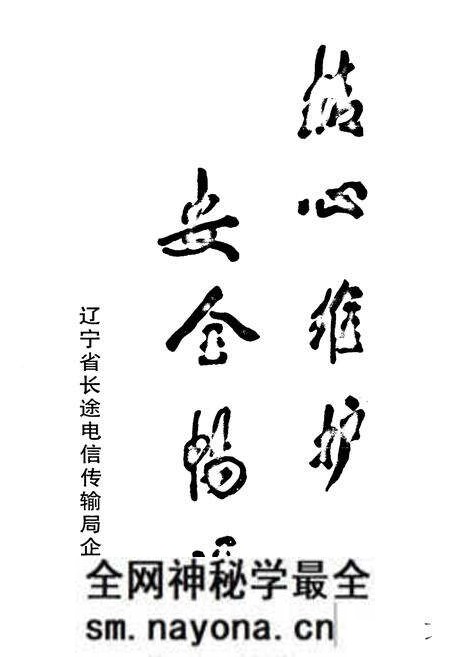 精心维护
安全畅
辽宁省长途电信传输局企
全网神秘学最全
sm.nayona.cn